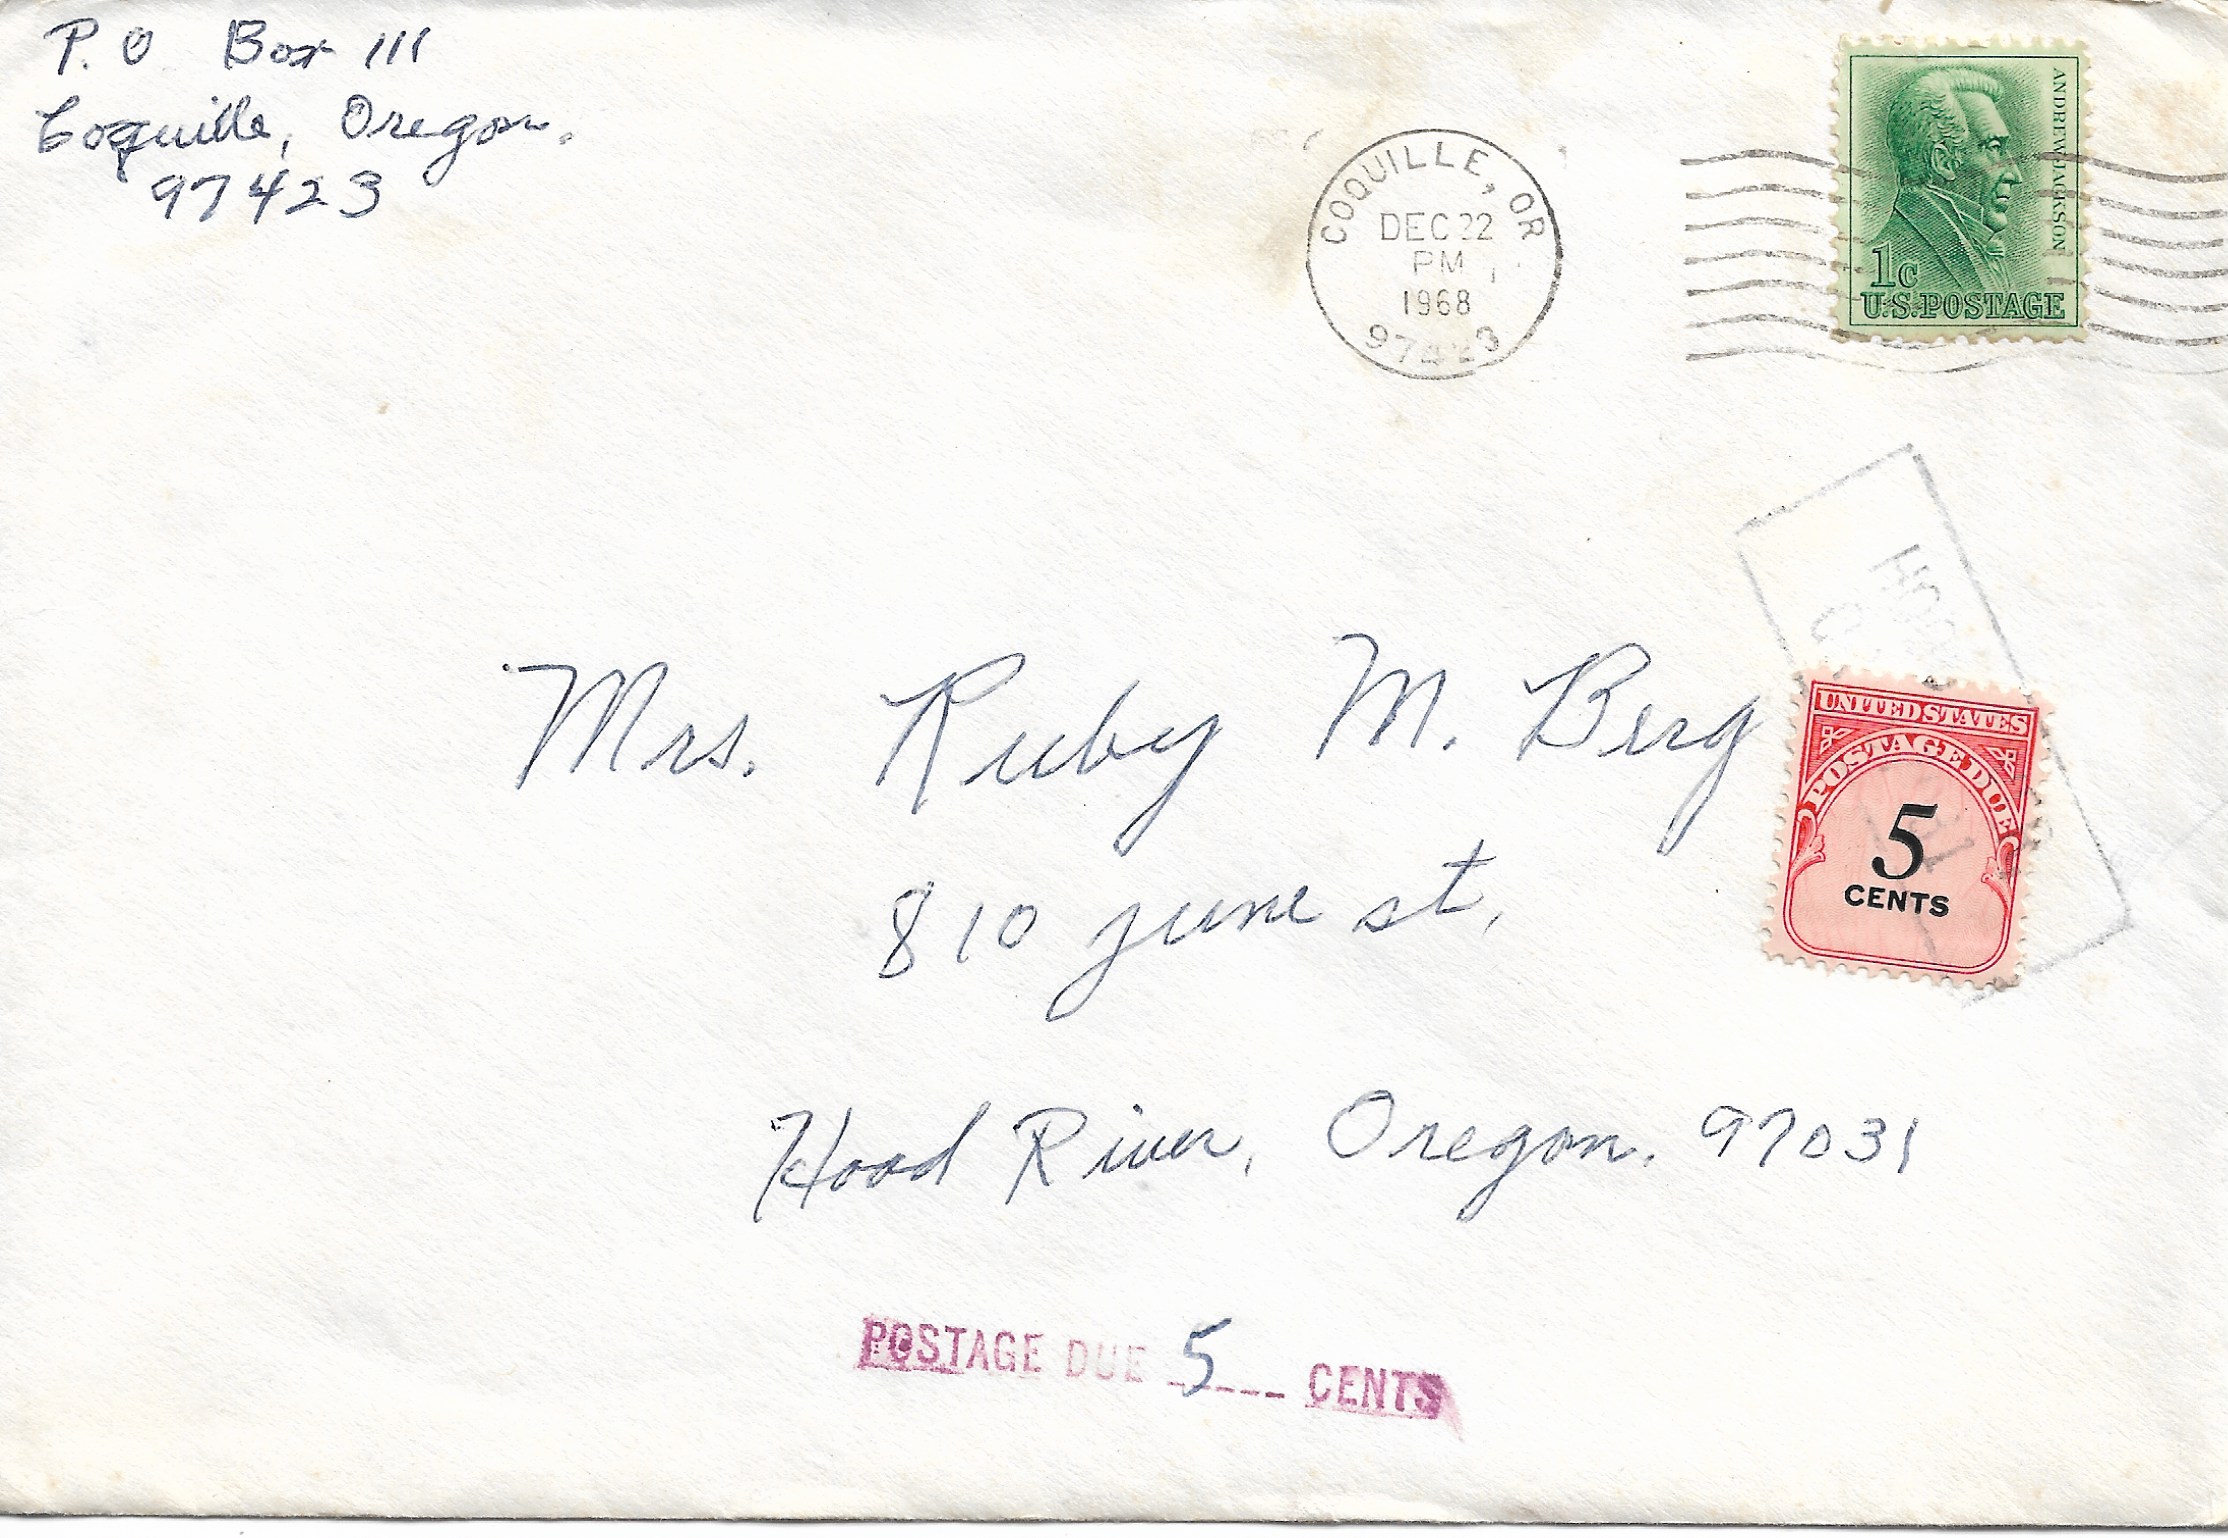 P.O Box 111
Coquille, Oregon.
97423
COQUILLE, OR
DEC 22
PM
1968
97423
ANDREW JACKSON
1c
U.S. POSTAGE
Mrs. Ruby M. Berg
810 June st,
Hood River, Oregon. 97031
UNITED STATES
POSTAGE DUE
5
CENTS
POSTAGE DUE 5 CENTS